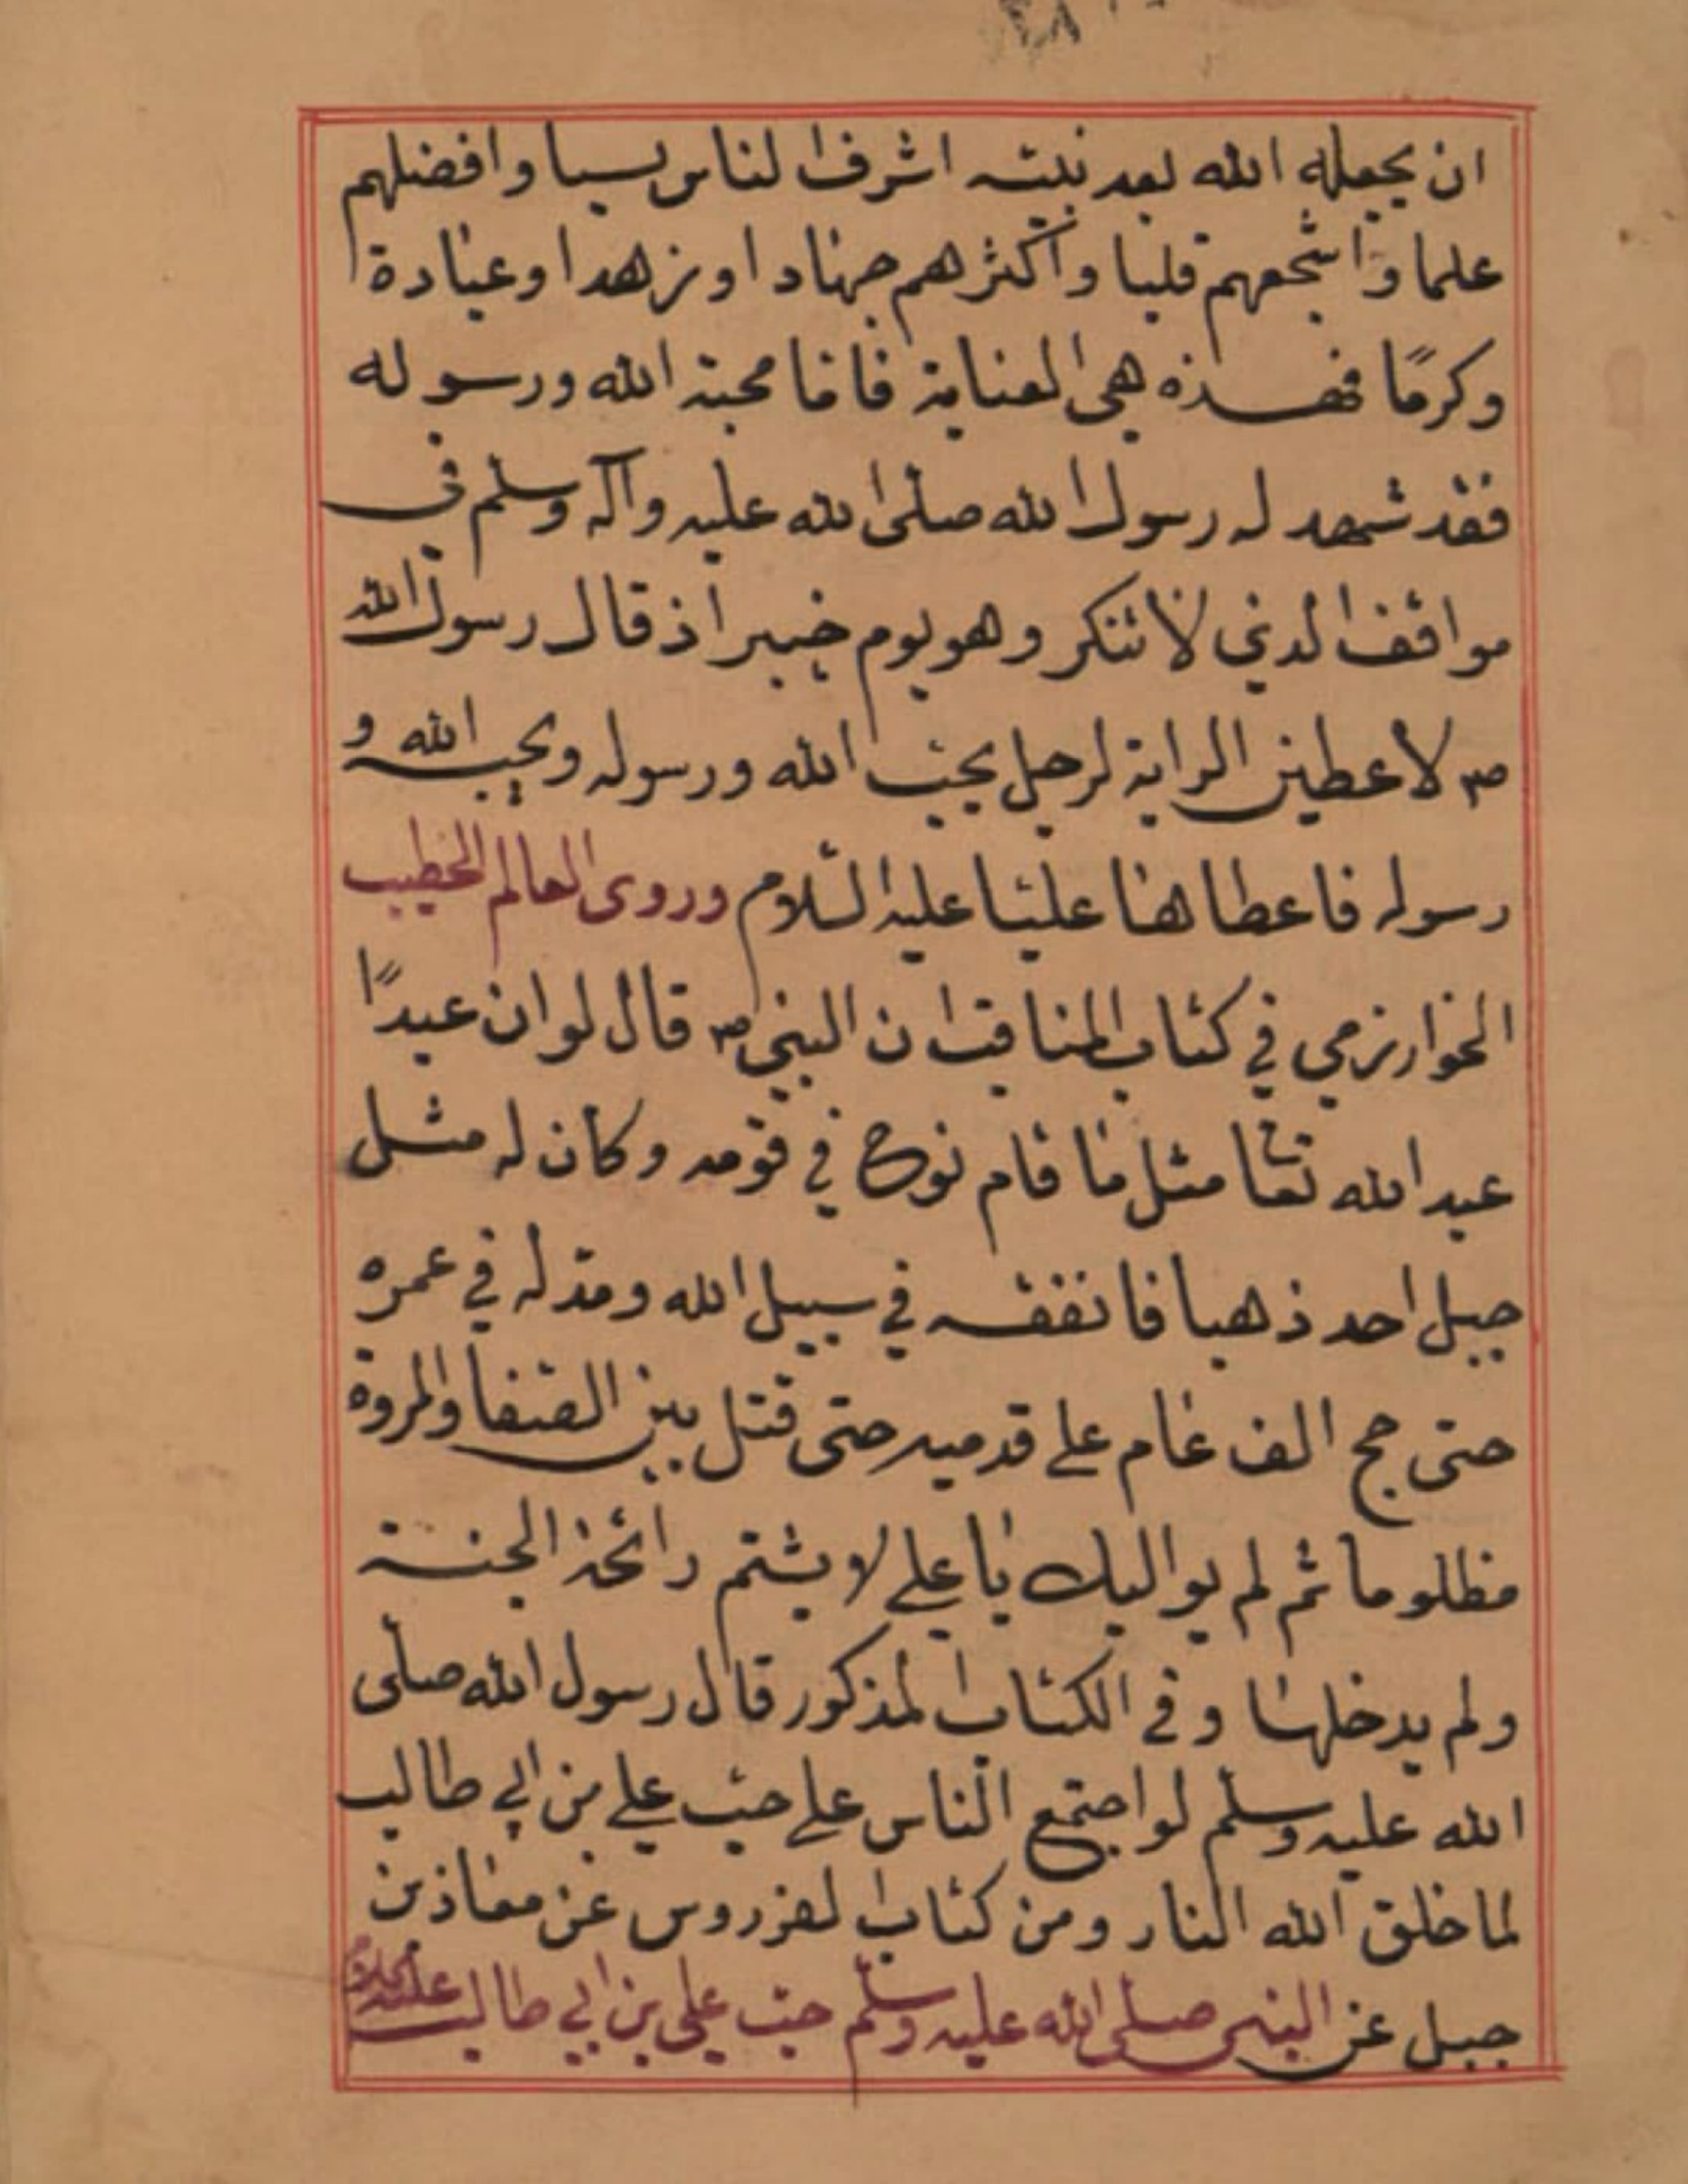 ان يجعله الله بعد نبيته اشرف الناس نسبا وافضلهم
علما واشجعهم قلبا واكثرهم جهادا وزهدا وعبادة
وكرمًا فهذه هي العناية فاما محبة الله ورسوله
فقد شهد له رسول الله صلى الله عليه وآله وسلم في
مواقف الذي لا تنكر وهو يوم خيبر اذ قال رسول الله
ص لاعطين الراية لرجل يحب الله ورسوله ويحبه الله و
رسوله فاعطاها عليا عليه السّلام وروى العالم الخطيب
الخوارزمي في كتاب المناقب ان النبي ص قال لو ان عبدًا
عبد الله تعا مثل ما قام نوح في قومه وكان له مثل
جبل احد ذهبا فانفقه في سبيل الله ومدّ له في عمره
حتى حج الف عام على قدميه حتى قتل بين الصّفا والمروة
مظلوما ثم لم يواليك يا علي لا يشتم رائحة الجنة
ولم يدخلها وفي الكتاب المذكور قال رسول الله صلى
الله عليه وسلم لو اجتمع النّاس على حبّ علي بن ابي طالب
لما خلق الله النار ومن كتاب الفردوس عن معاذ بن
جبل عن النبي صلى الله عليه وسلم حبّ علي بن ابي طالب